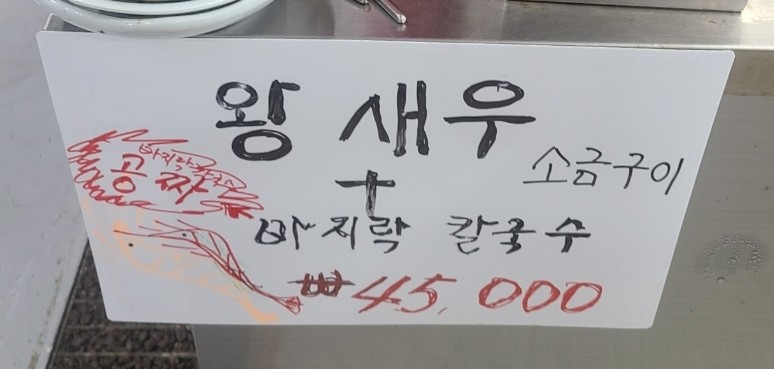 왕 새우
소금구이
+
바지락칼국수
공짜
바지락 칼국수
₩45,000